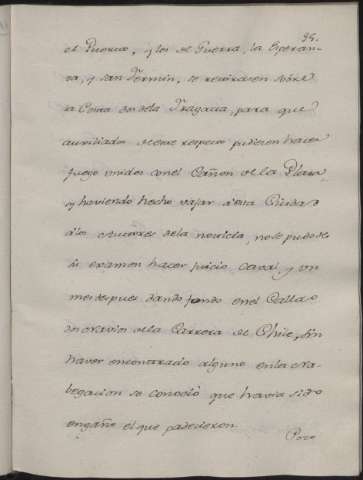 95.
el Puerto, y los de Guerra, la Esperan-
za, y San Fermin, se retirasen sobre
la Costa de la Fragata, para que
auxiliados de este respeto pudiesen hacer
fuego unidos con el Cañon de la Plaza,
y haviendo hecho vajar à esta Ciudad
à los Autores de la noticia, no se pudo de
su examen hacer juicio caval, y un
mes despues dando fondo en el Callao
dos Navios de la Carrera de Chile, sin
haver encontrado alguno en la na-
begacion se conocio que havia sido
engaño el que padecieron.
Poco